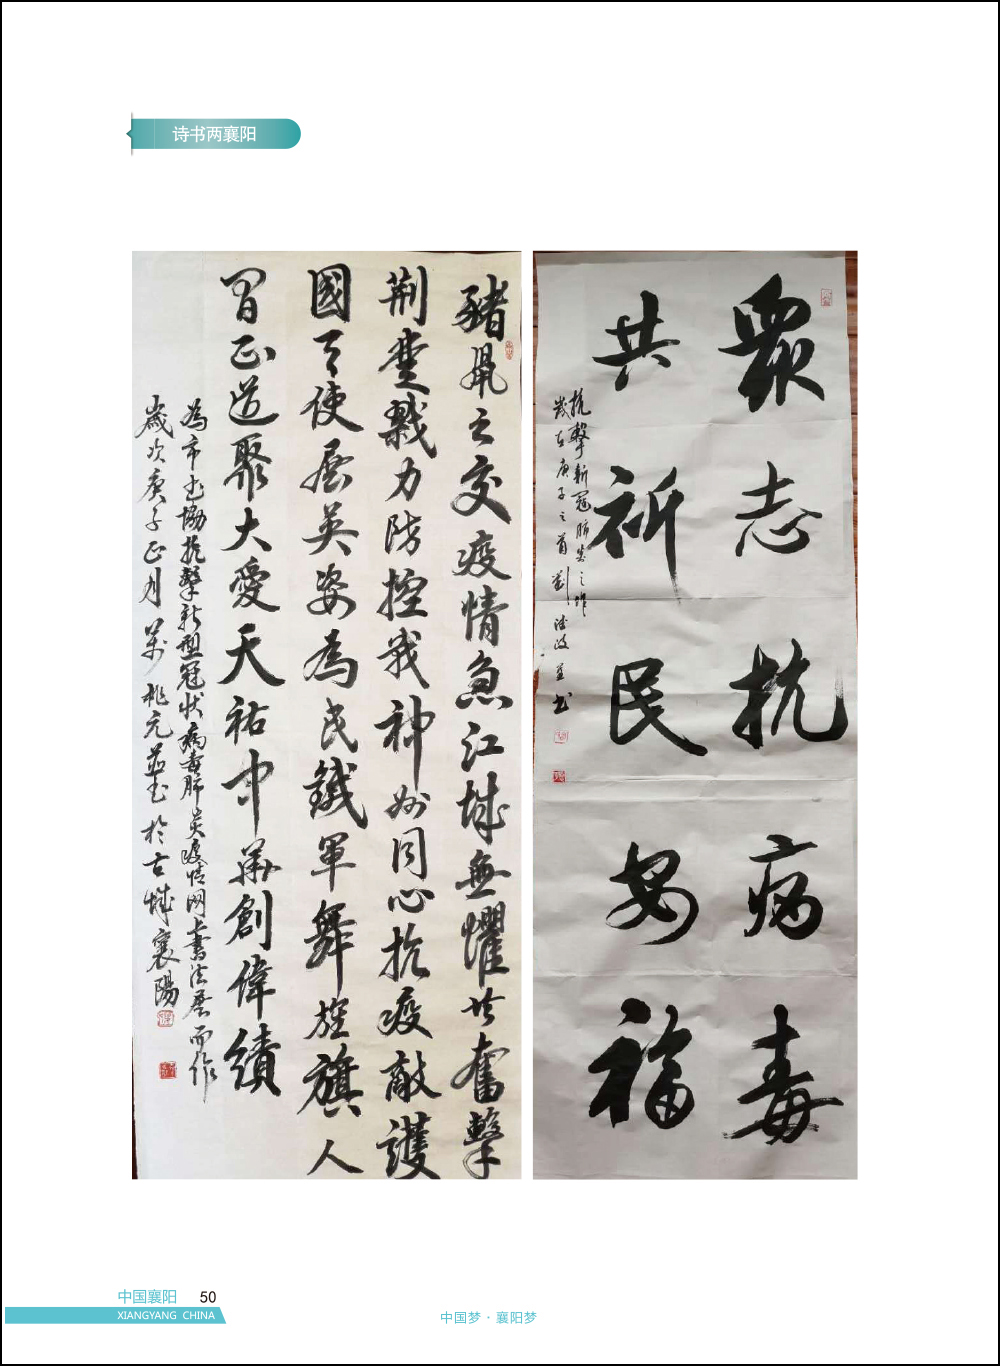 诗书两襄阳
豬鼠之交疫情急江城無懼共奮擊
荆楚戮力防控战神州同心抗疫敵護
國天使展英姿為民鐵軍舞旌旗人
間正道聚大愛天祐中華創偉績
為市书協抗擊新型冠狀病毒肺炎疫情网上書法展而作
歲次庚子正月元並书於古城襄陽
眾志抗病毒
共祈民安福
抗擊新冠肺炎之作
歲在庚子之首劉德政並书
中国襄阳 50
XIANGYANG CHINA
中国梦·襄阳梦